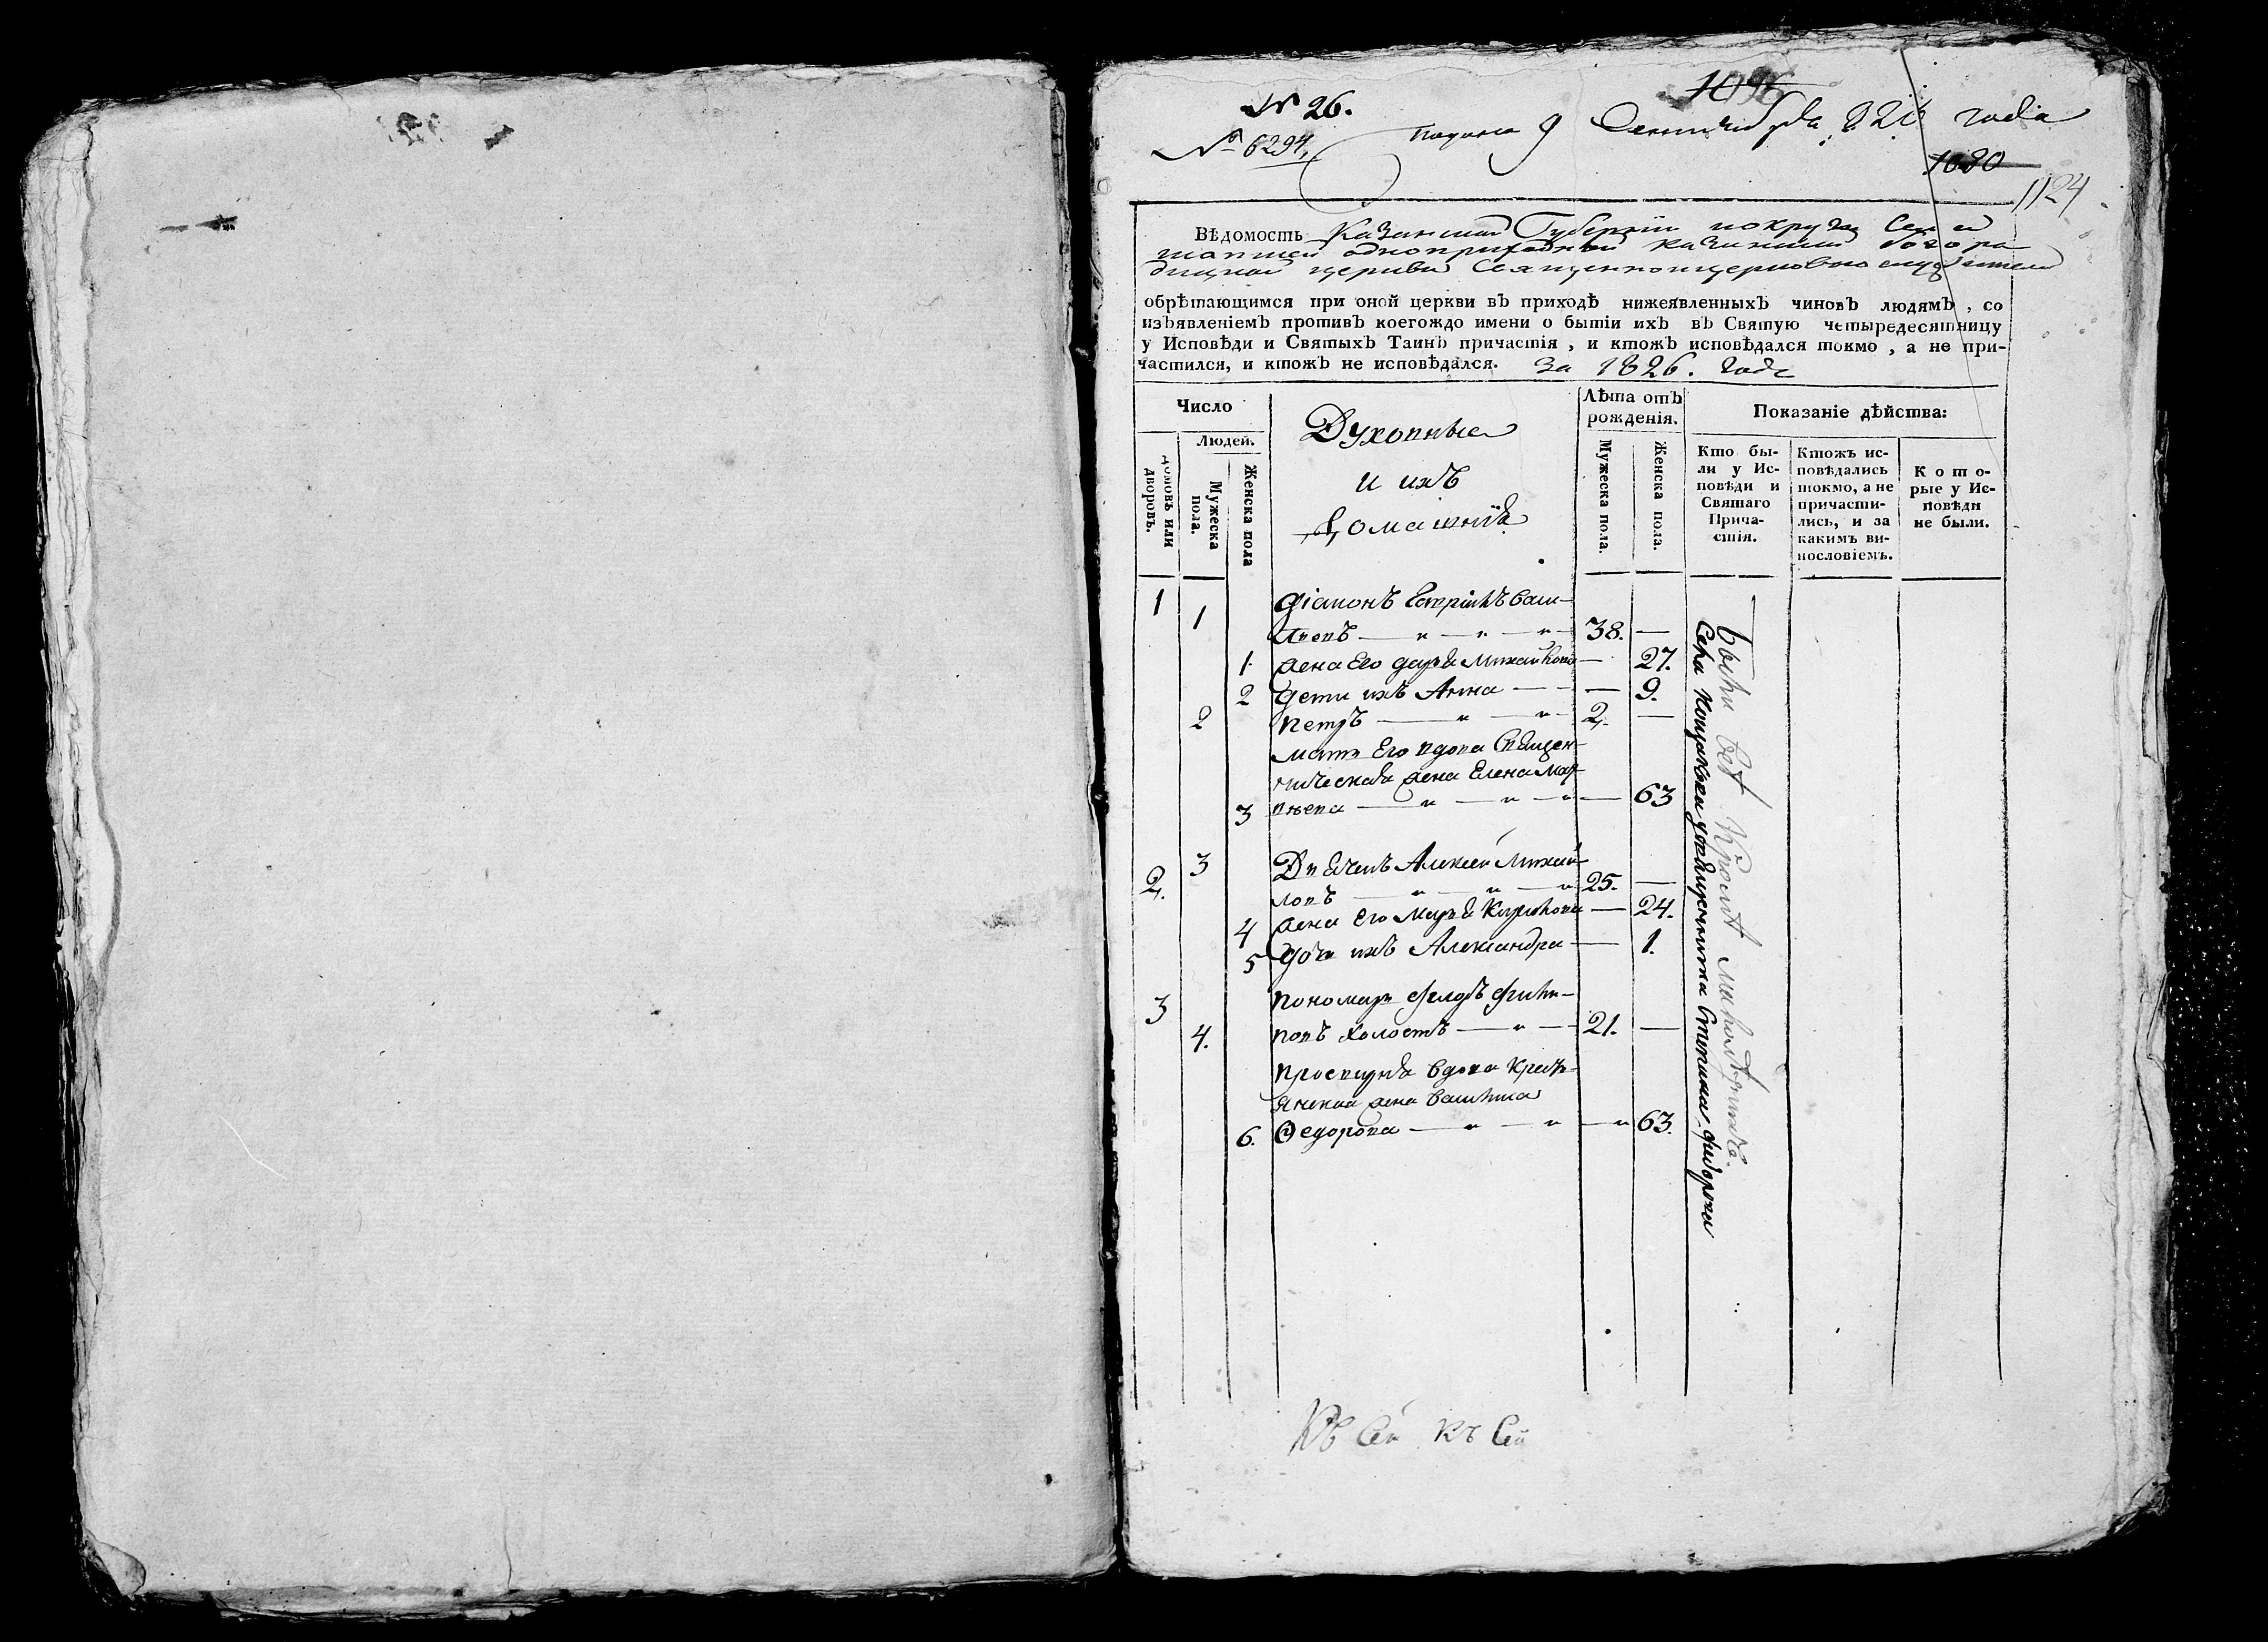 № 26.
1096
№ 6294,
подана 9 Сентября 826 года
1080
1124
Вѣдомость Казанской Губерніи
однопри­ходной казанской богоро
дицкой церкви Священноцерковно служителей
обрѣтающимся при оной церкви въ приходѣ нижеявленныхъ чиновъ людямъ, со
изъявленіемъ противъ коегождо имени о бытіи ихъ въ Святую четыредесятницу
у Исповѣди и Святыхъ Таинъ причастія, и ктожъ исповѣдался токмо, а не при-
частился, и ктожъ не исповѣдался. За 1826. годъ
Число
Людей.
домовъ или дворовъ.
Мужеска пола.
Женска пола
Духовные
и ихъ
домашнія
Лѣта отъ рожденія.
Мужеска пола.
Женска пола.
Показаніе дѣйства:
Кто бы-
ли у Ис-
повѣди и
Святаго
Прича-
стія.
Ктожъ ис-
повѣдались
токмо, а не
причасти-
лись, и за
какимъ ви-
нословіемъ.
Кото-
рые у Ис-
повѣди
не были.
1 1 Діаконъ Васи-
льевъ — „ — „ — „ 38. —
1 жена Его дарья Михайлова — 27.
2 Дети ихъ Анна — — — 9.
2 Петръ — „ — „ 2. —
мать Его вдова Священ-
ническая жена Елена Мат-
3 вѣева — „ — „ — „ — 63
2. 3 Дьячекъ Алексѣй Михай-
ловъ — „ — „ — „ 25. —
4 жена его Марья Кирилова — 24.
5 дочь ихъ Александра — 1.
3 пономарь Федоръ Фили-
4. повъ холостъ — „ — 21. —
просвирня вдова Кресть-
янская жена
6. Федорова — „ — „ — „ 63.
Были всѣ Кромѣ малолѣтнихъ.
Степана Фидорова
Къ Сей Къ Сей